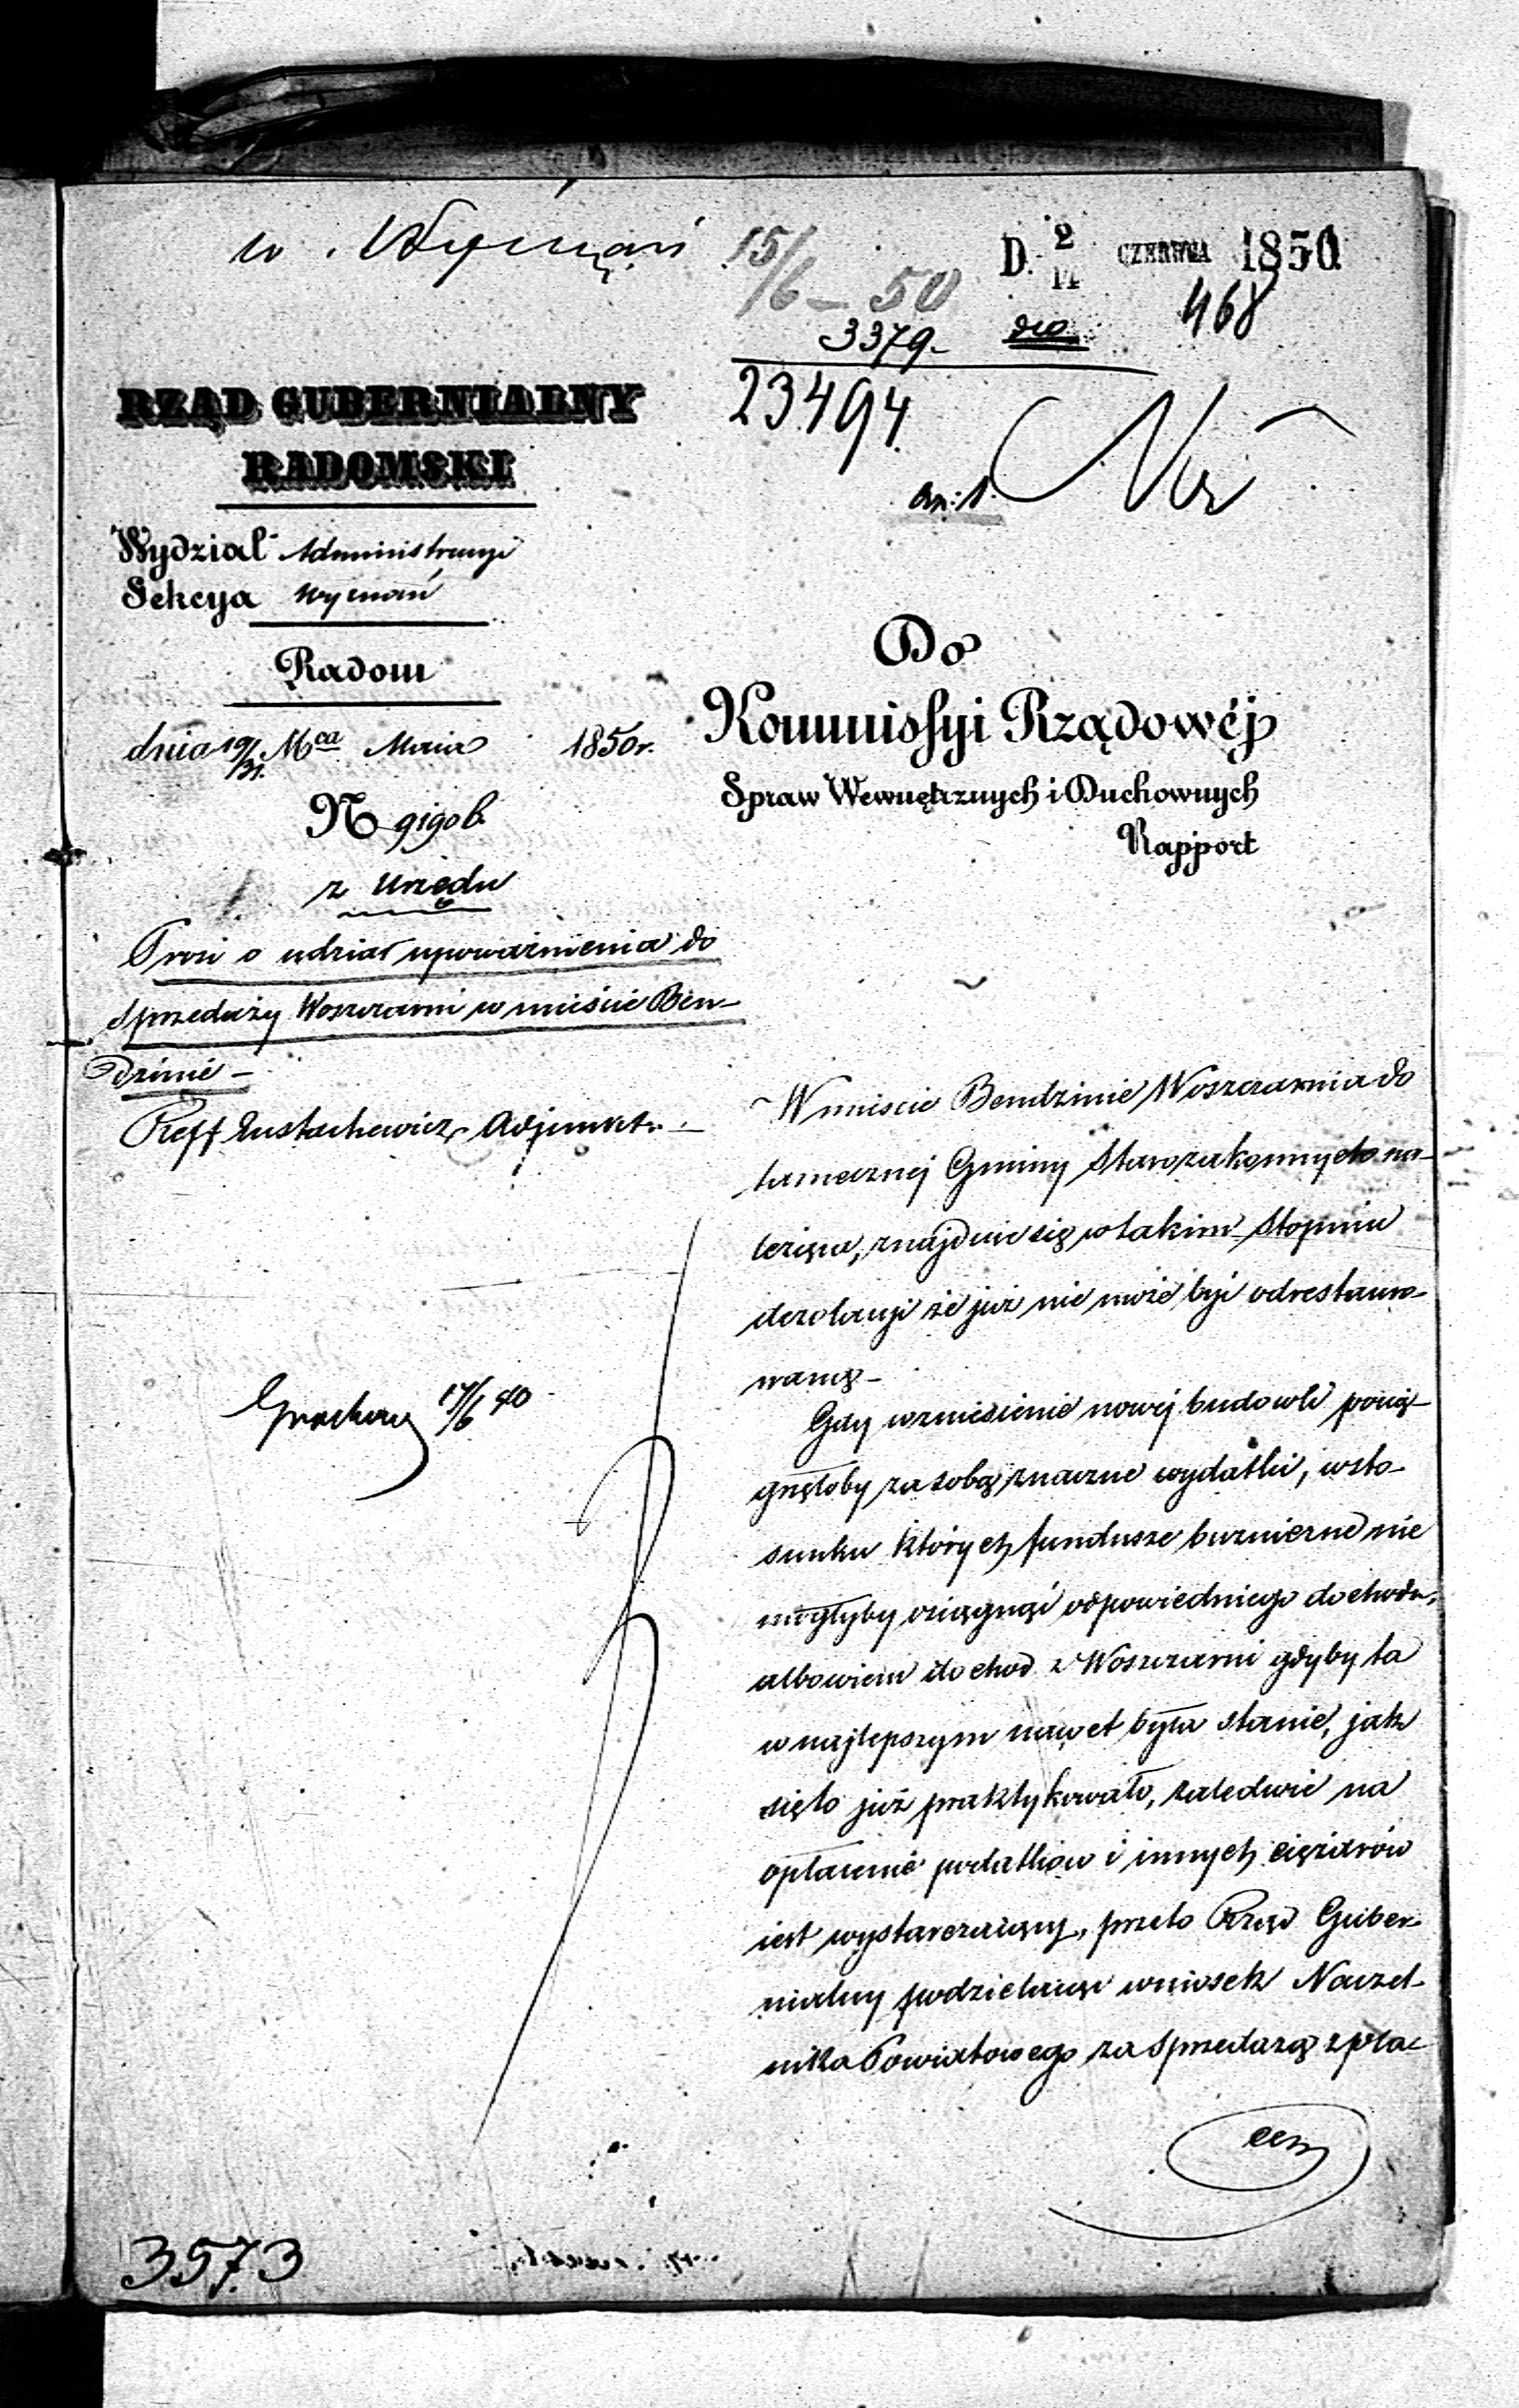 w. Wyznań
15/6 – 50
D. 2/14 CZERWCA 1850
468
3379
23494
an: 1.
RZĄD GUBERNIALNY
RADOMSKI
Wydział Administracyi
Sekcya Wyznań
Radom
dnia 19/31 Mca Maia 1850 r.
N 91906.
z Urzędu
Prosi o udział upoważnienia do
sprzedaży Woszczarni w mieście Ben-
dzinie –
Reff Eustachewicz Adjunkt.
17/6
Do
Kommissyi Rządowéj
Spraw Wewnętrznych i Duchownych
Rapport
W mieście Bendzinie Woszczarnia do
tamecznej Gminy Starozakonnych na-
leżąca, znajduie się w takim stopniu
dezolacyi że już nie może być odrestauro-
waną –
Gdy wzniesienie nowej budowli pocią-
gnęłoby za sobą znaczne wydatki, w sto-
sunku których fundusze bożnicze nie
mogłyby osiągnąć odpowiedniego dochodu,
albowiem dochod z Woszczarni gdyby ta
w najlepszym nawet była stanie, jak
się to już praktykowało, zaledwie na
opłacenie podatków i innych ciężarów
iest wystarczaiący, przeto Rząd Guber-
nialny podzielaiąc wniosek Naczel-
nika Powiatowego za sprzedażą z pla-
cem
3573